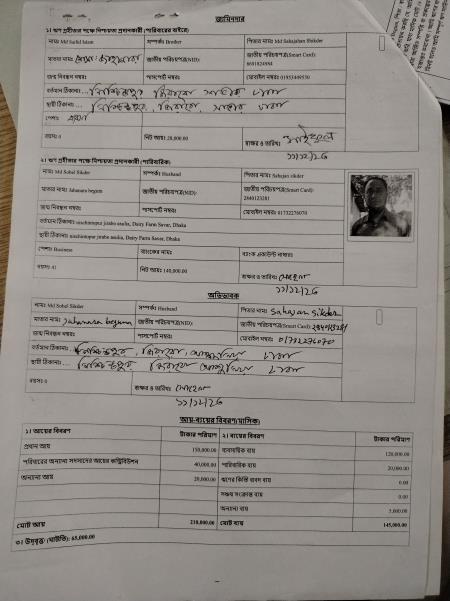 জামিনদার
১। ঋণ গ্রহীতার পক্ষে নিশ্চয়তা প্রদানকারী (পরিবারের বাহিরে)
নাম: Md Saiful Islam সম্পর্ক: Brother পিতার নাম: Md Sahajahan Sikder
মাতার নাম: জাতীয় পরিচয়পত্র(NID): জাতীয় পরিচয়পত্র(Smart Card):
জন্ম নিবন্ধন নম্বর: পাসপোর্ট নম্বর: মোবাইল নাম্বার: 01953449530
বর্তমান ঠিকানা: নিশ্চিন্তপুর, জিরাবো, সাভার ঢাকা
স্থায়ী ঠিকানা: নিশ্চিন্তপুর, জিরাবো, সাভার ঢাকা
পেশা:
বয়স: 0 নিট আয়: 20,000.00 স্বাক্ষর ও তারিখ:
১১/১২/২৫
২। ঋণ গ্রহীতার পক্ষে নিশ্চয়তা প্রদানকারী (পারিবারিক)
নাম: Md Sohel Sikder সম্পর্ক: Husband পিতার নাম: Sahajan sikder
মাতার নাম: Jahanara begum জাতীয় পরিচয়পত্র(NID): জাতীয় পরিচয়পত্র(Smart Card):
2840123281
জন্ম নিবন্ধন নম্বর: পাসপোর্ট নম্বর: মোবাইল নাম্বার: 01732276070
বর্তমান ঠিকানা: nischintopur jirabo asulia, Dairy Farm Savar, Dhaka
স্থায়ী ঠিকানা: nischintopur jirabo asulia, Dairy Farm Savar, Dhaka
পেশা: Business ব্যাংকের নাম: ব্যাংক একাউন্ট নাম্বার:
বয়স: 41 নিট আয়: 140,000.00 স্বাক্ষর ও তারিখ: সোহেল
অভিভাবক
নাম: Md Sohel Sikder সম্পর্ক: Husband পিতার নাম: Sahajan sikder
মাতার নাম: Jahanara begum জাতীয় পরিচয়পত্র(NID): জাতীয় পরিচয়পত্র(Smart Card):
জন্ম নিবন্ধন নম্বর: পাসপোর্ট নম্বর: মোবাইল নাম্বার: 01732276070
বর্তমান ঠিকানা: নিশ্চিন্তপুর, জিরাবো, আশুলিয়া ঢাকা
স্থায়ী ঠিকানা: নিশ্চিন্তপুর জিরাবো আশুলিয়া ঢাকা
বয়স: 0 স্বাক্ষর ও তারিখ: সোহেল
আয়-ব্যয়ের বিবরণ(মাসিক)
১। আয়ের বিবরণ টাকার পরিমাণ ২। ব্যয়ের বিবরণ টাকার পরিমাণ
প্রধান আয় 150,000.00 ব্যবসায়িক ব্যয় 120,000.00
পরিবারের অন্যান্য সদস্যদের আয়ের কন্ট্রিবিউশন 40,000.00 পারিবারিক ব্যয় 20,000.00
অন্যান্য আয় 20,000.00 ঋণের কিস্তি বাবদ ব্যয় 0.00
সঞ্চয় সংক্রান্ত ব্যয় 0.00
অন্যান্য ব্যয় 5,000.00
মোট আয় 210,000.00 মোট ব্যয় 145,000.00
৩। উদ্বৃত্ত/ (ঘাটতি): 65,000.00